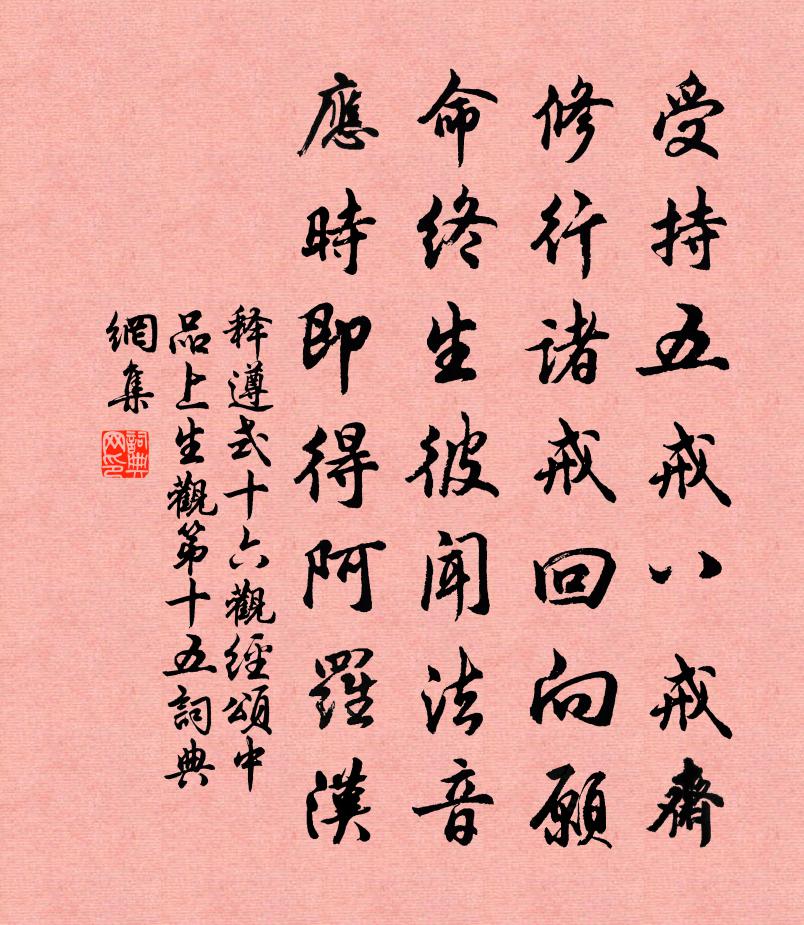 受持五戒八戒齋
修行諸戒回向願
命終生彼聞法音
應時即得阿羅漢
释遵式十六觀經頌中
品上生觀第十五詞典
網集
詞典网印